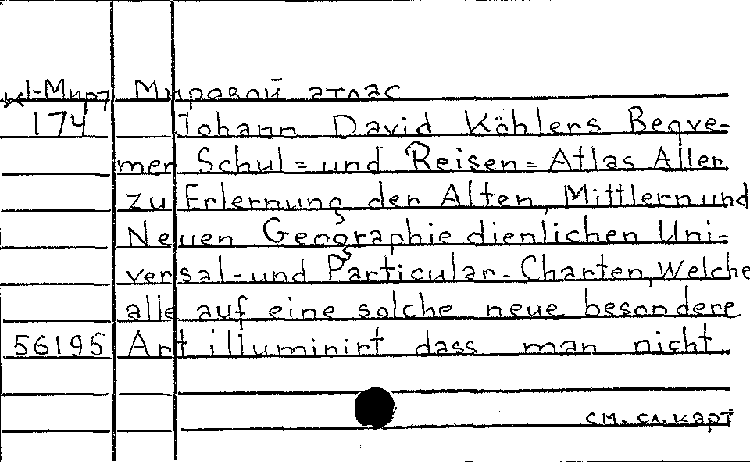 Мировой атлас
174 Johann David Köhlers Beqve-
mer Schul= und Reisen= Atlas Aller
zu Erlernung der Alten, Mittlern und
Neuen Geographie dienlichen Uni-
versal- und Particular- Charten, Welche
alle auf eine solche neue besondere
56195 Art illuminirt dass man nicht
см. сл. карт